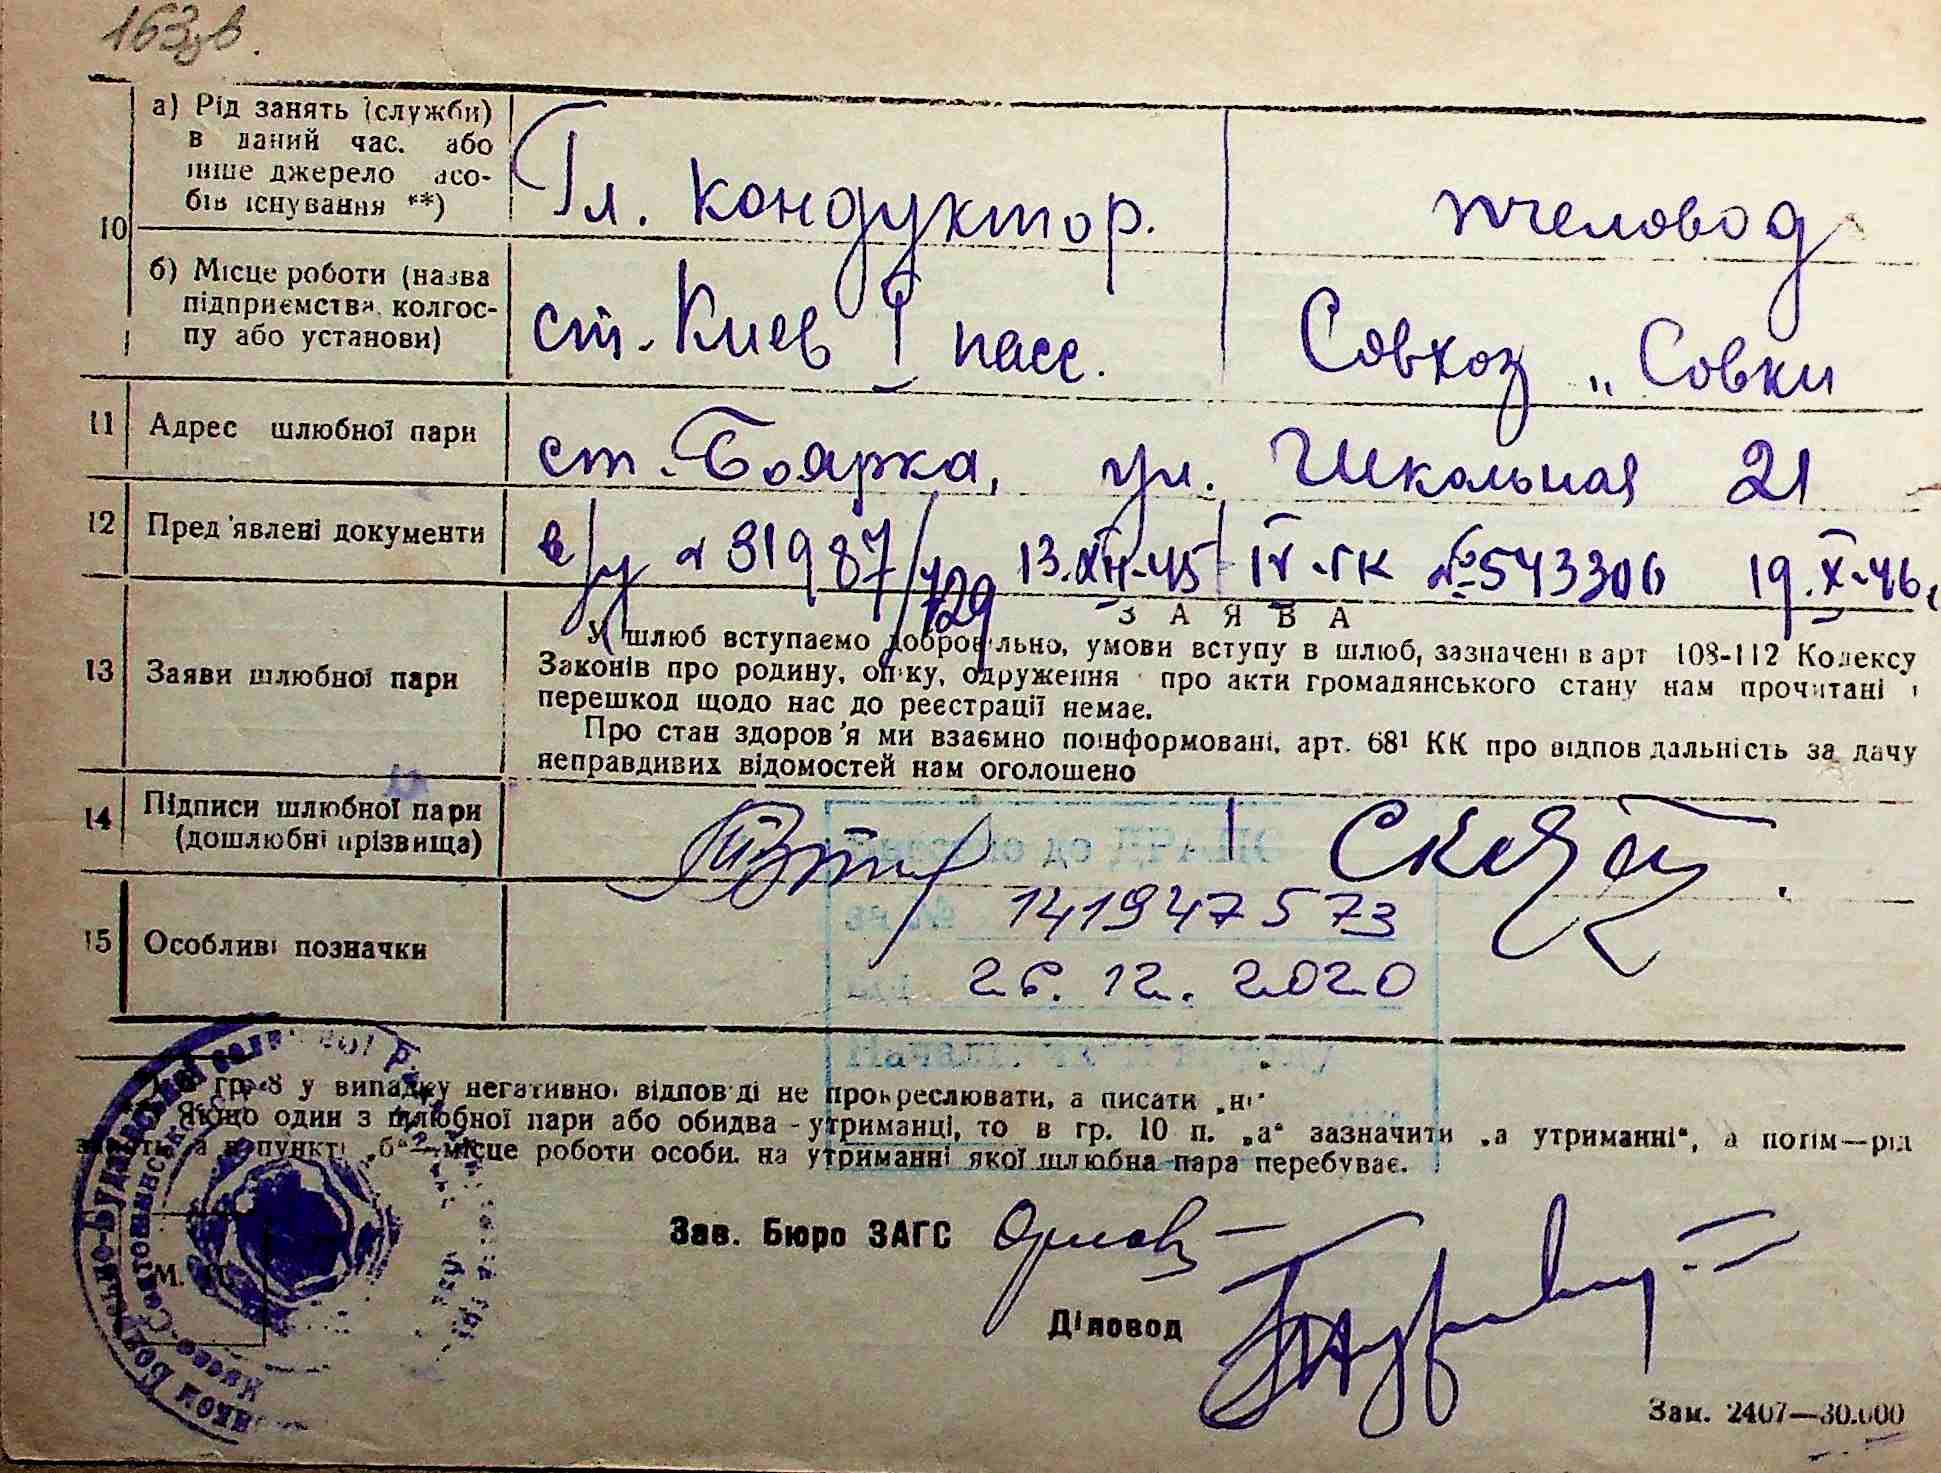 163зв.
а) Рід занять (служби)
в даний час. або
інше джерело засо-
бів існування **)
Гл. кондуктор.
пчеловод
10
б) Місце роботи (назва
підприємства, колгос-
пу або установи)
ст. Киев I пасс.
Совхоз „Совки
11 Адрес шлюбної пари
ст. Боярка, ул. Школьная 21
12 Пред'явлені документи
в/у № 31987/729 13.XII-45 IV-ГК №543306 19.X-46.
13 Заяви шлюбної пари
ЗАЯВА
У шлюб вступаємо добровільно, умови вступу в шлюб, зазначені в арт 108-112 Кодексу
Законів про родину, опіку, одруження і про акти громадянського стану нам прочитані і
перешкод щодо нас до реєстрації немає.
Про стан здоров'я ми взаємно поінформовані, арт. 68¹ КК про відповідальність за дачу
неправдивих відомостей нам оголошено
14 Підписи шлюбної пари
(дошлюбні прізвища)
15 Особливі позначки
141947573
26.12.2020
гр. 8 у випадку негативної відповіді не прокреслювати, а писати „ні"
Якщо один з шлюбної пари або обидва - утриманці, то в гр. 10 п. „а" зазначити „а утриманні", а потім—рід
в пункті „б"—місце роботи особи, на утриманні якої шлюбна пара перебуває.
Зав. Бюро ЗАГС
Діловод
М. П.
Зам. 2407—30.000